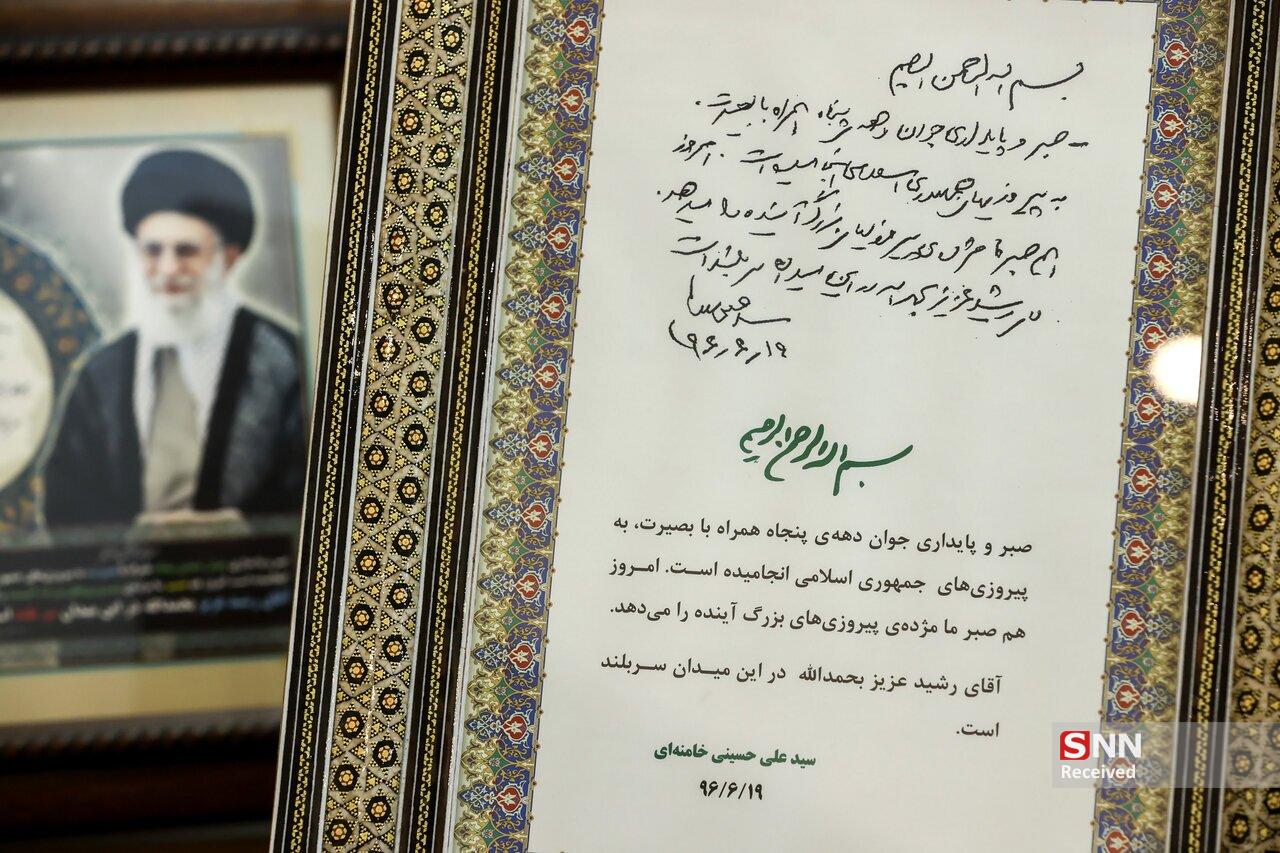 بسم الله الرحمن الرحیم
- صبر و پایداری جوان دهه‌ی پنجاه همراه با بصیرت،
به پیروزیهای جمهوری اسلامی انجامیده است. امروز
هم صبر ما مژده‌ی پیروزیهای بزرگ آینده را میدهد.
رشید عزیز بحمدالله در این میدان سربلند است
۹۶٫۶٫۱۹
بسم الله الرحمن الرحیم
صبر و پایداری جوان دهه‌ی پنجاه همراه با بصیرت، به
پیروزی‌های جمهوری اسلامی انجامیده است. امـروز
هم صبر ما مژده‌ی پیروزی‌های بزرگ آینده را می‌دهد.
آقای رشید عزیز بحمدالله در این میـدان سـربلند
است.
سید علی حسینی خامنه‌ای
۹۶/۶/۱۹
SNN
Received